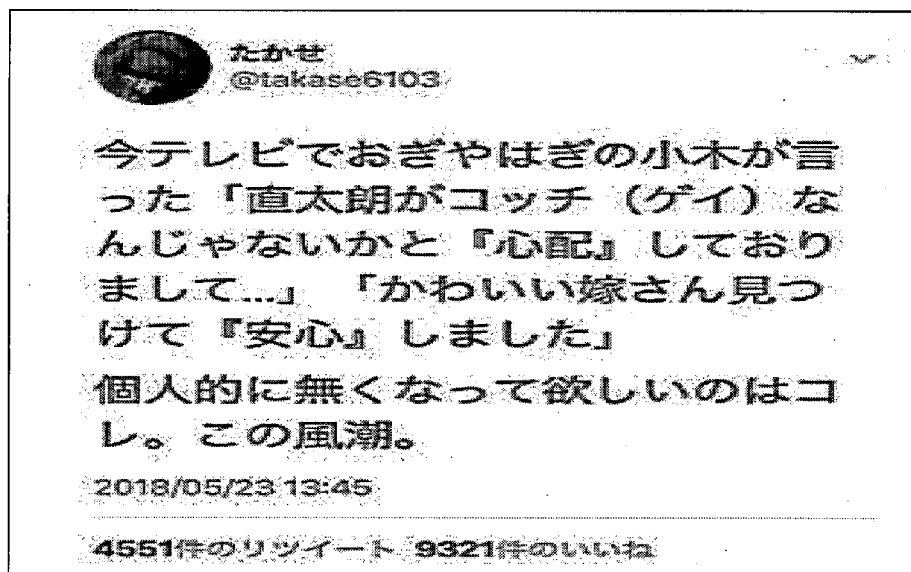 たかせ
@takase6103
今テレビでおぎやはぎの小木が言
った「直太朗がコッチ（ゲイ）な
んじゃないかと『心配』しており
まして...」「かわいい嫁さん見つ
けて『安心』しました」
個人的に無くなって欲しいのはコ
レ。この風潮。
2018/05/23 13:45
4551件のリツイート 9321件のいいね